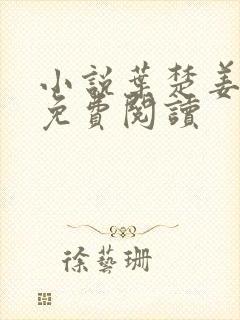 小說葉楚姜
免費閱讀
徐藝珊